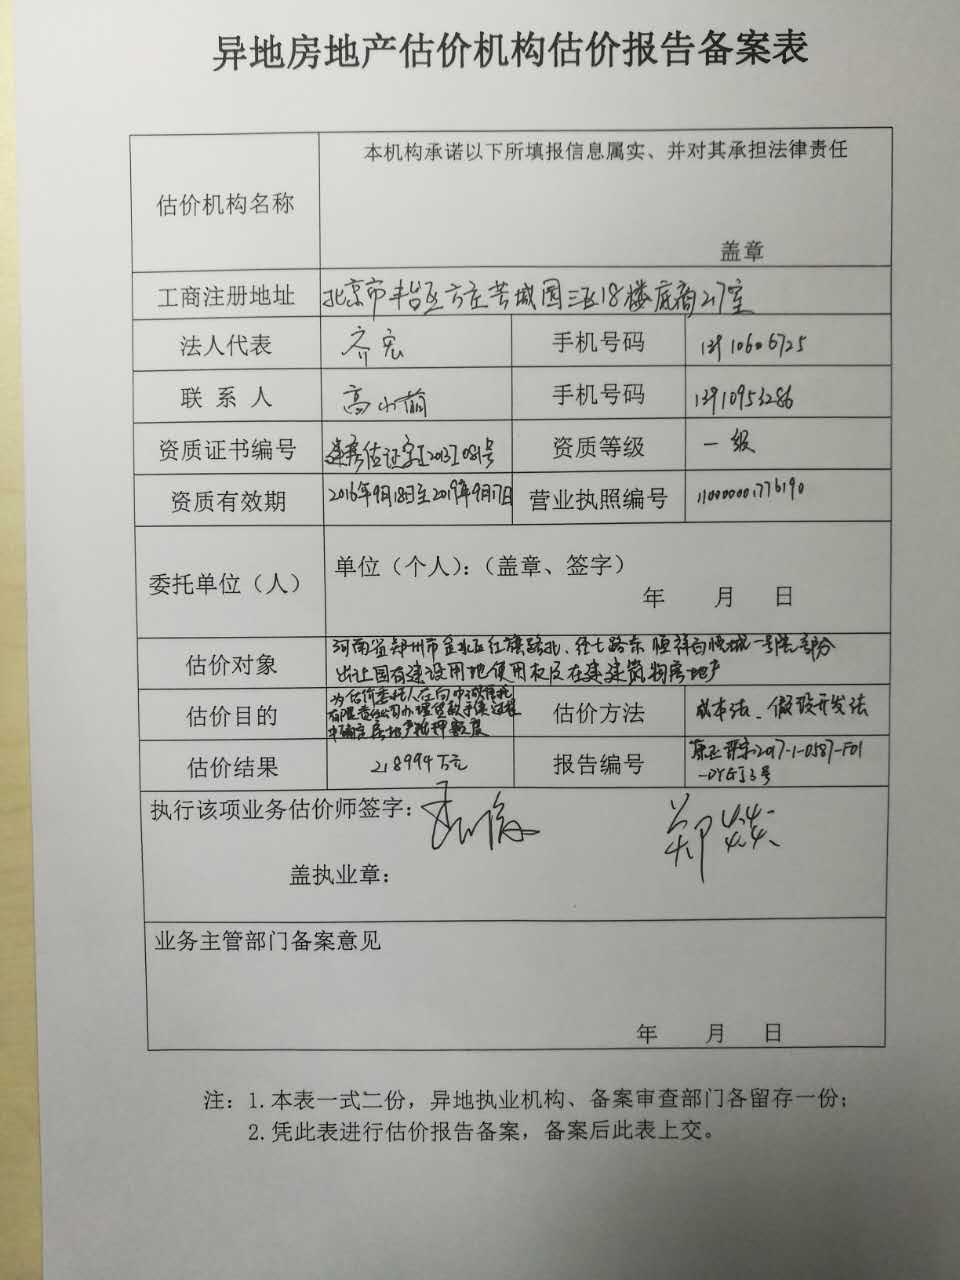 异地房地产估价机构估价报告备案表
估价机构名称
本机构承诺以下所填报信息属实、并对其承担法律责任
盖章
工商注册地址 北京市丰台区方庄芳城园三区18楼底商217室
法人代表 齐宏 手机号码 13910606725
联 系 人 高小翁 手机号码 13910953286
资质证书编号 建房估证字[2013]081号 资质等级 一级
资质有效期 2016年9月18日至2019年9月17日 营业执照编号 110000001776190
委托单位（人） 单位（个人）：（盖章、签字）
年 月 日
估价对象 河南省郑州市金水区红旗路北、经七路东 恒祥百悦城一号院部分
出让国有建设用地使用权及在建建筑物房地产
估价目的 为估价委托人在向中诚信托
有限责任公司办理贷款手续过程
中确定房地产抵押额度
估价方法 成本法、假设开发法
估价结果 218994万元 报告编号 京正评字2017-1-0587-F01
-DYGJ3号
执行该项业务估价师签字：
盖执业章：
业务主管部门备案意见
年 月 日
注：1.本表一式二份，异地执业机构、备案审查部门各留存一份；
2.凭此表进行估价报告备案，备案后此表上交。